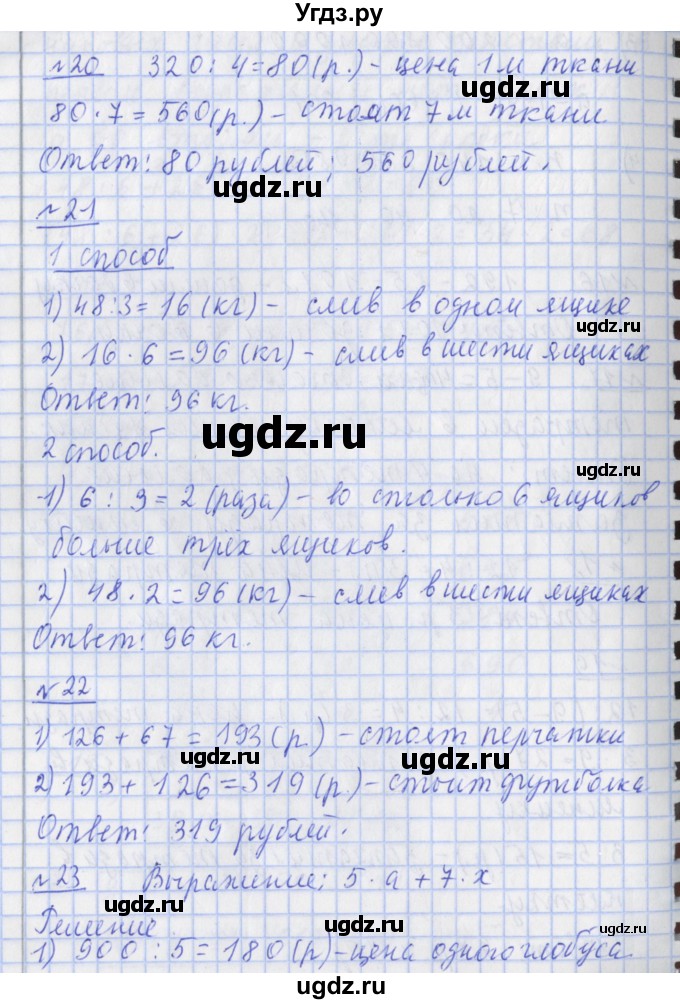 Угдз.ру
№20 320 : 4 = 80 (р.) – цена 1 м ткани
ugdz.ru
80 · 7 = 560 (р.) – стоят 7 м ткани
ugdz.ru
Ответ: 80 рублей; 560 рублей.
ugdz.ru
№21
1 способ
1) 48 : 3 = 16 (кг) – слив в одном ящике
ugdz.ru
2) 16 · 6 = 96 (кг) – слив в шести ящиках
ugdz.ru
Ответ: 96 кг.
ugdz.ru
2 способ.
ugdz.ru
1) 6 : 3 = 2 (раза) – во столько 6 ящиков
больше трёх ящиков.
ugdz.ru
2) 48 · 2 = 96 (кг) – слив в шести ящиках
ugdz.ru
Ответ: 96 кг.
№22
1) 126 + 67 = 193 (р.) – стоят перчатки
ugdz.ru
ugdz.ru
2) 193 + 126 = 319 (р.) – стоит футболка
Ответ: 319 рублей.
№23 Выражение: 5 · а + 7 · х
ugdz.ru
ugdz.ru
Решение.
1) 900 : 5 = 180 (р) – цена одного глобуса.
ugdz.ru